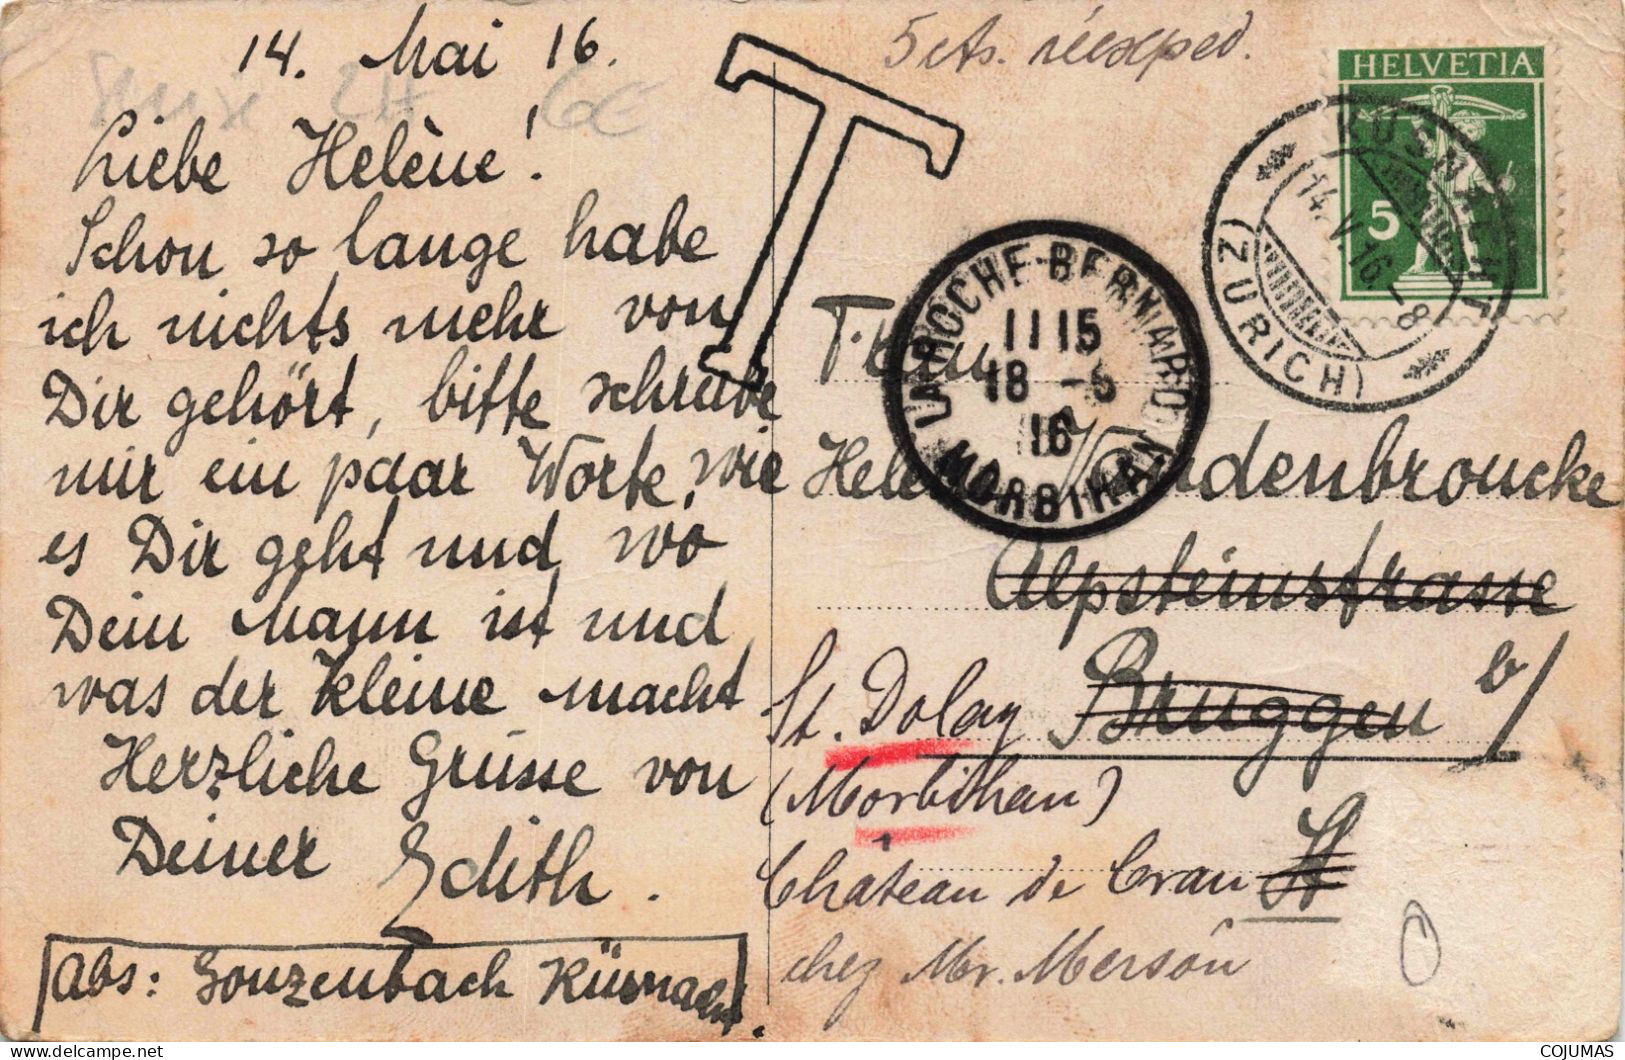 14. Mai 16.
Liebe Helène!
Schon so lange habe
ich nichts mehr von
Dir gehört, bitte schreibe
mir ein paar Worte, wie
es Dir geht und wo
Dein Mann ist und
was der Kleine macht
Herzliche Grüsse von
Deiner Edith.
Abs: Gonzenbach Küsnacht.
T
5 cts. réexped.
HELVETIA
5
KÜSNACHT
(ZÜRICH)
14.V.16.-8
LA ROCHE-BERNARD
11 15
18 -5
16
MORBIHAN
Frau
Helene Vandenbroucke
Alpsteinstrasse
St. Dolay Bruggen b/
(Morbihan)
Château de Cran St
chez Mr. Merson
6€
COJUMAS